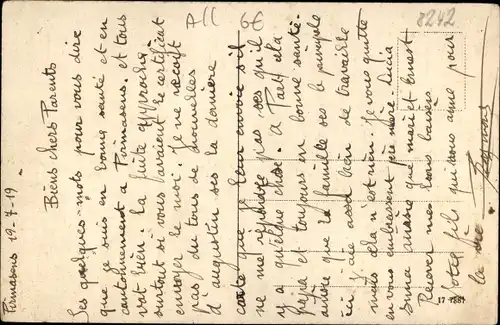 Pirmasens 19-7-19
Biens chers Parents
Ses quelques-mots pour vous dire
que je suis en bonne santé et en
cantonnement a Pirmasens et tous
vat bien. la suite approche
surtout si vous m'avaient le certificat
envoyer le moi. Je ne recoit
pas du tous de nouvelles
d'augustin ses la derniere
carte que je leur envoie s'il
ne me reponde pas, ses qu'il
y a quelque chose. A Part cela
papa et toujours en bonne santé
ainsie que la famille ses la principale
ici j'aie assé bien de travaille
mais cela n'est rien. Je vous quitte
en vous embrassent père mère. Lucia
Emma ainsie que mari et Ernest
Recever mes bons baisers.
Votre fils qui vous aime pour
la vie
P11
6€
8242
17 1881